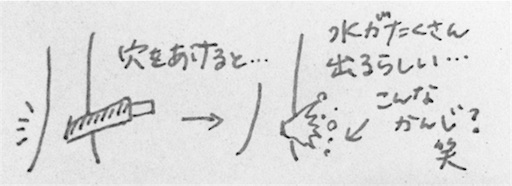 穴をあけると…
水がたくさん
出るらしい…
こんな
かんじ?
笑